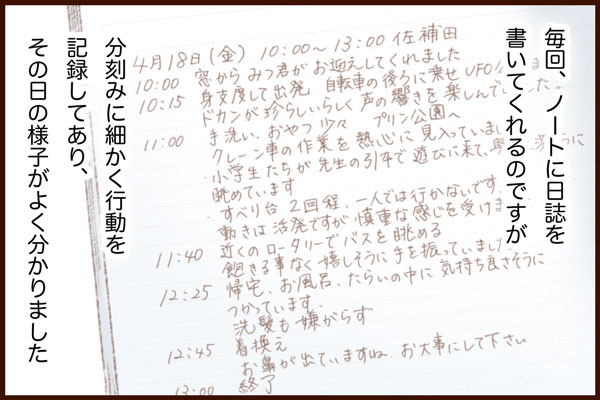 毎回、ノートに日誌を
書いてくれるのですが
4月18日(金) 10:00〜13:00 佐補田
10:00 窓からみつ君がお迎えしてくれました
10:15 身支度して出発 自転車の後ろに乗せ UFO
ドカンが珍らしいらしく声の響きを楽しんで
手洗い、おやつ少々 プリン公園へ
11:00 クレーン車の作業を熱心に見入っていま
小学生たちが先生の引率で遊びに来て、
眺めています
すべり台 2回程、一人では行かないです
動きは活発ですが慎重な感じを受けま
11:40 近くのロータリーでバスを眺める
飽きる事なく嬉しそうに手を振っていました
12:25 帰宅、お風呂、たらいの中に気持ち良さそうに
つかっています。
洗髪も嫌がらず
12:45 着換え
お鼻が出ていますね、お大事にして下さい
13:00 終了
分刻みに細かく行動を
記録してあり、
その日の様子がよく分かりました